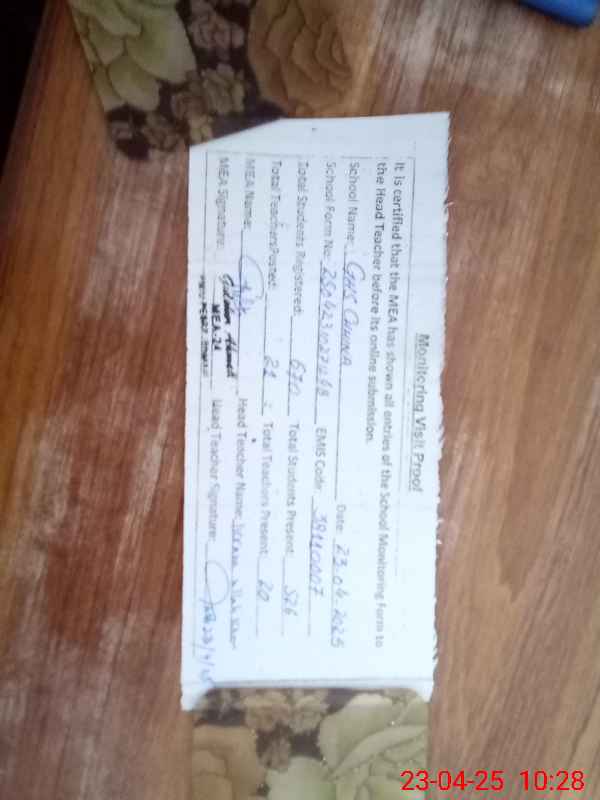 Monitoring Visit Proof
It is certified that the MEA has shown all entries of the School Monitoring Form to
the Head Teacher before its online submission.
School Name: GHS CHUNA Date: 23.04.2025
School Form No: EMIS Code: 38110007
Total Students Registered: 670 Total Students Present: 526
Total Teachers Posted: 21 Total Teachers Present: 20
MEA Name: Head Teacher Name:
MEA Signature: Ahmed Head Teacher Signature:
MEA-24
23-04-25 10:28